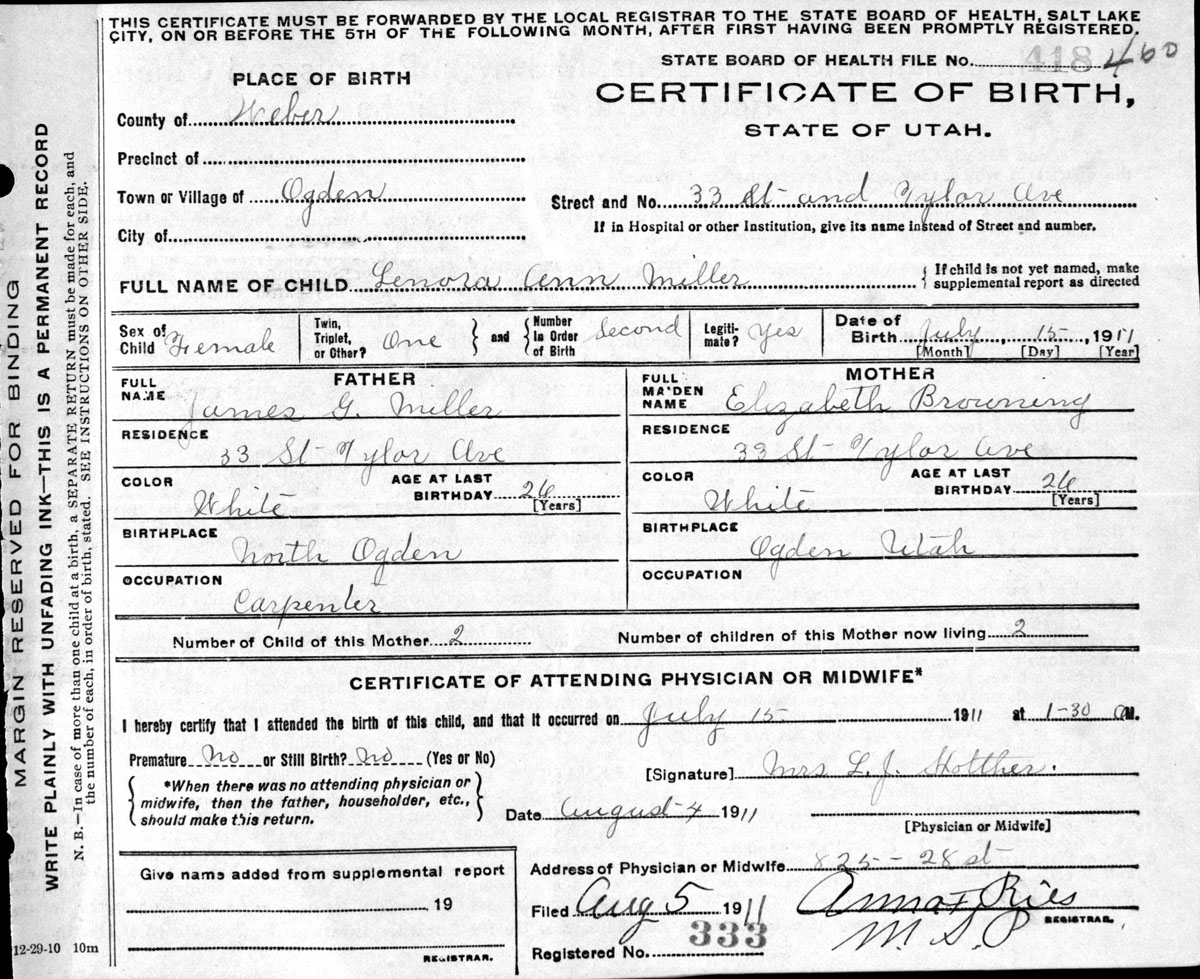 THIS CERTIFICATE MUST BE FORWARDED BY THE LOCAL REGISTRAR TO THE STATE BOARD OF HEALTH, SALT LAKE
CITY, ON OR BEFORE THE 5TH OF THE FOLLOWING MONTH, AFTER FIRST HAVING BEEN PROMPTLY REGISTERED.
STATE BOARD OF HEALTH FILE No. 418 460
PLACE OF BIRTH
CERTIFICATE OF BIRTH,
STATE OF UTAH.
County of Weber
Precinct of
Town or Village of Ogden
Street and No. 33 St and Tylor Ave
City of
If in Hospital or other Institution, give its name instead of Street and number.
FULL NAME OF CHILD Lenora Ann Miller { If child is not yet named, make
supplemental report as directed
Sex of Child Female
Twin, Triplet, or Other? One } and { Number in Order of Birth Second
Legitimate? Yes
Date of Birth July 15, 1911
[Month] [Day] [Year]
FATHER
FULL NAME James G. Miller
RESIDENCE 33 St Tylor Ave
COLOR White
AGE AT LAST BIRTHDAY 26 [Years]
BIRTHPLACE North Ogden
OCCUPATION Carpenter
MOTHER
FULL MAIDEN NAME Elizabeth Browning
RESIDENCE 33 St Tylor Ave
COLOR White
AGE AT LAST BIRTHDAY 26 [Years]
BIRTHPLACE Ogden Utah
OCCUPATION
Number of Child of this Mother 2
Number of children of this Mother now living 2
CERTIFICATE OF ATTENDING PHYSICIAN OR MIDWIFE*
I hereby certify that I attended the birth of this child, and that it occurred on July 15 1911 at 1-30 a M.
Premature No or Still Birth? No (Yes or No)
[Signature] Mrs L. J.
{ *When there was no attending physician or
midwife, then the father, householder, etc.,
should make this return. }
Date August 4 1911
[Physician or Midwife]
Give name added from supplemental report
19
REGISTRAR.
Address of Physician or Midwife 825 - 28 st
Filed Aug 5 1911 Anna F Ries
REGISTRAR.
Registered No. 333
12-29-10 10m
MARGIN RESERVED FOR BINDING
WRITE PLAINLY WITH UNFADING INK—THIS IS A PERMANENT RECORD
N. B.—In case of more than one child at a birth, a SEPARATE RETURN must be made for each, and
the number of each, in order of birth, stated. SEE INSTRUCTIONS ON OTHER SIDE.